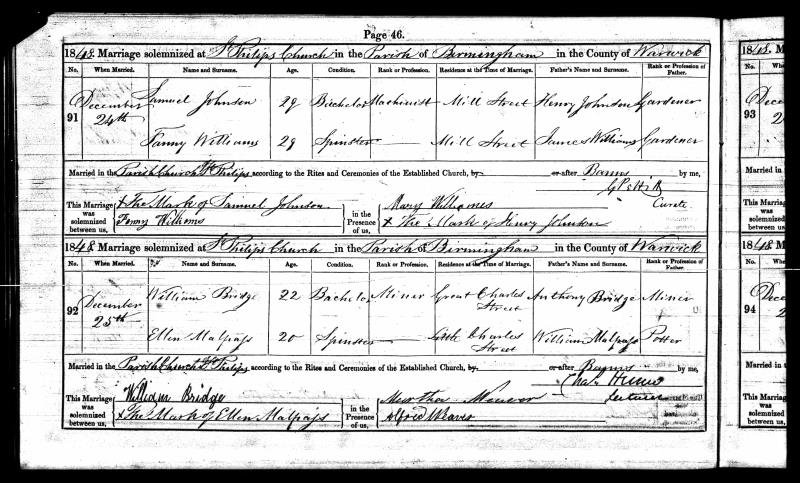 Page 46.
1848. Marriage solemnized at St Philips Church in the Parish of Birmingham in the County of Warwick
No. When Married. Name and Surname. Age. Condition. Rank or Profession. Residence at the Time of Marriage. Father's Name and Surname. Rank or Profession of Father.
91 December 24th Samuel Johnson 29 Bachelor Machinist Mill Street Henry Johnson Gardener
Fanny Williams 29 Spinster Mill Street James Williams Gardener
Married in the Parish Church St Philips according to the Rites and Ceremonies of the Established Church, by or after Banns by me,
Curate
This Marriage was solemnized between us, X The Mark of Samuel Johnson
Fanny Williams
in the Presence of us, Mary Williams
X The Mark of Henry Johnson
1848 Marriage solemnized at St Philips Church in the Parish of Birmingham in the County of Warwick
No. When Married. Name and Surname. Age. Condition. Rank or Profession. Residence at the Time of Marriage. Father's Name and Surname. Rank or Profession of Father.
92 December 25th William Bridge 22 Bachelor Miner Great Charles Street Anthony Bridge Miner
Ellen Malpass 20 Spinster Little Charles Street William Malpass Potter
Married in the Parish Church St Philips according to the Rites and Ceremonies of the Established Church, by or after Banns by me,
Lecturer
This Marriage was solemnized between us, William Bridge
X The Mark of Ellen Malpass
in the Presence of us, Martha
Alfred Weaver
1848.
No. When
93 Dece
2
1848
No. When
94 Dece
2
Married in
This Marriage was solemnized between us,